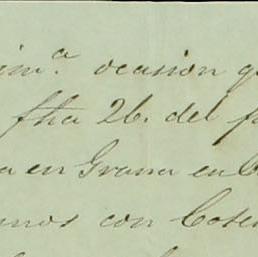 im.ª ocasion q
fha 26. del p
a en Grana en C
mos con Cose